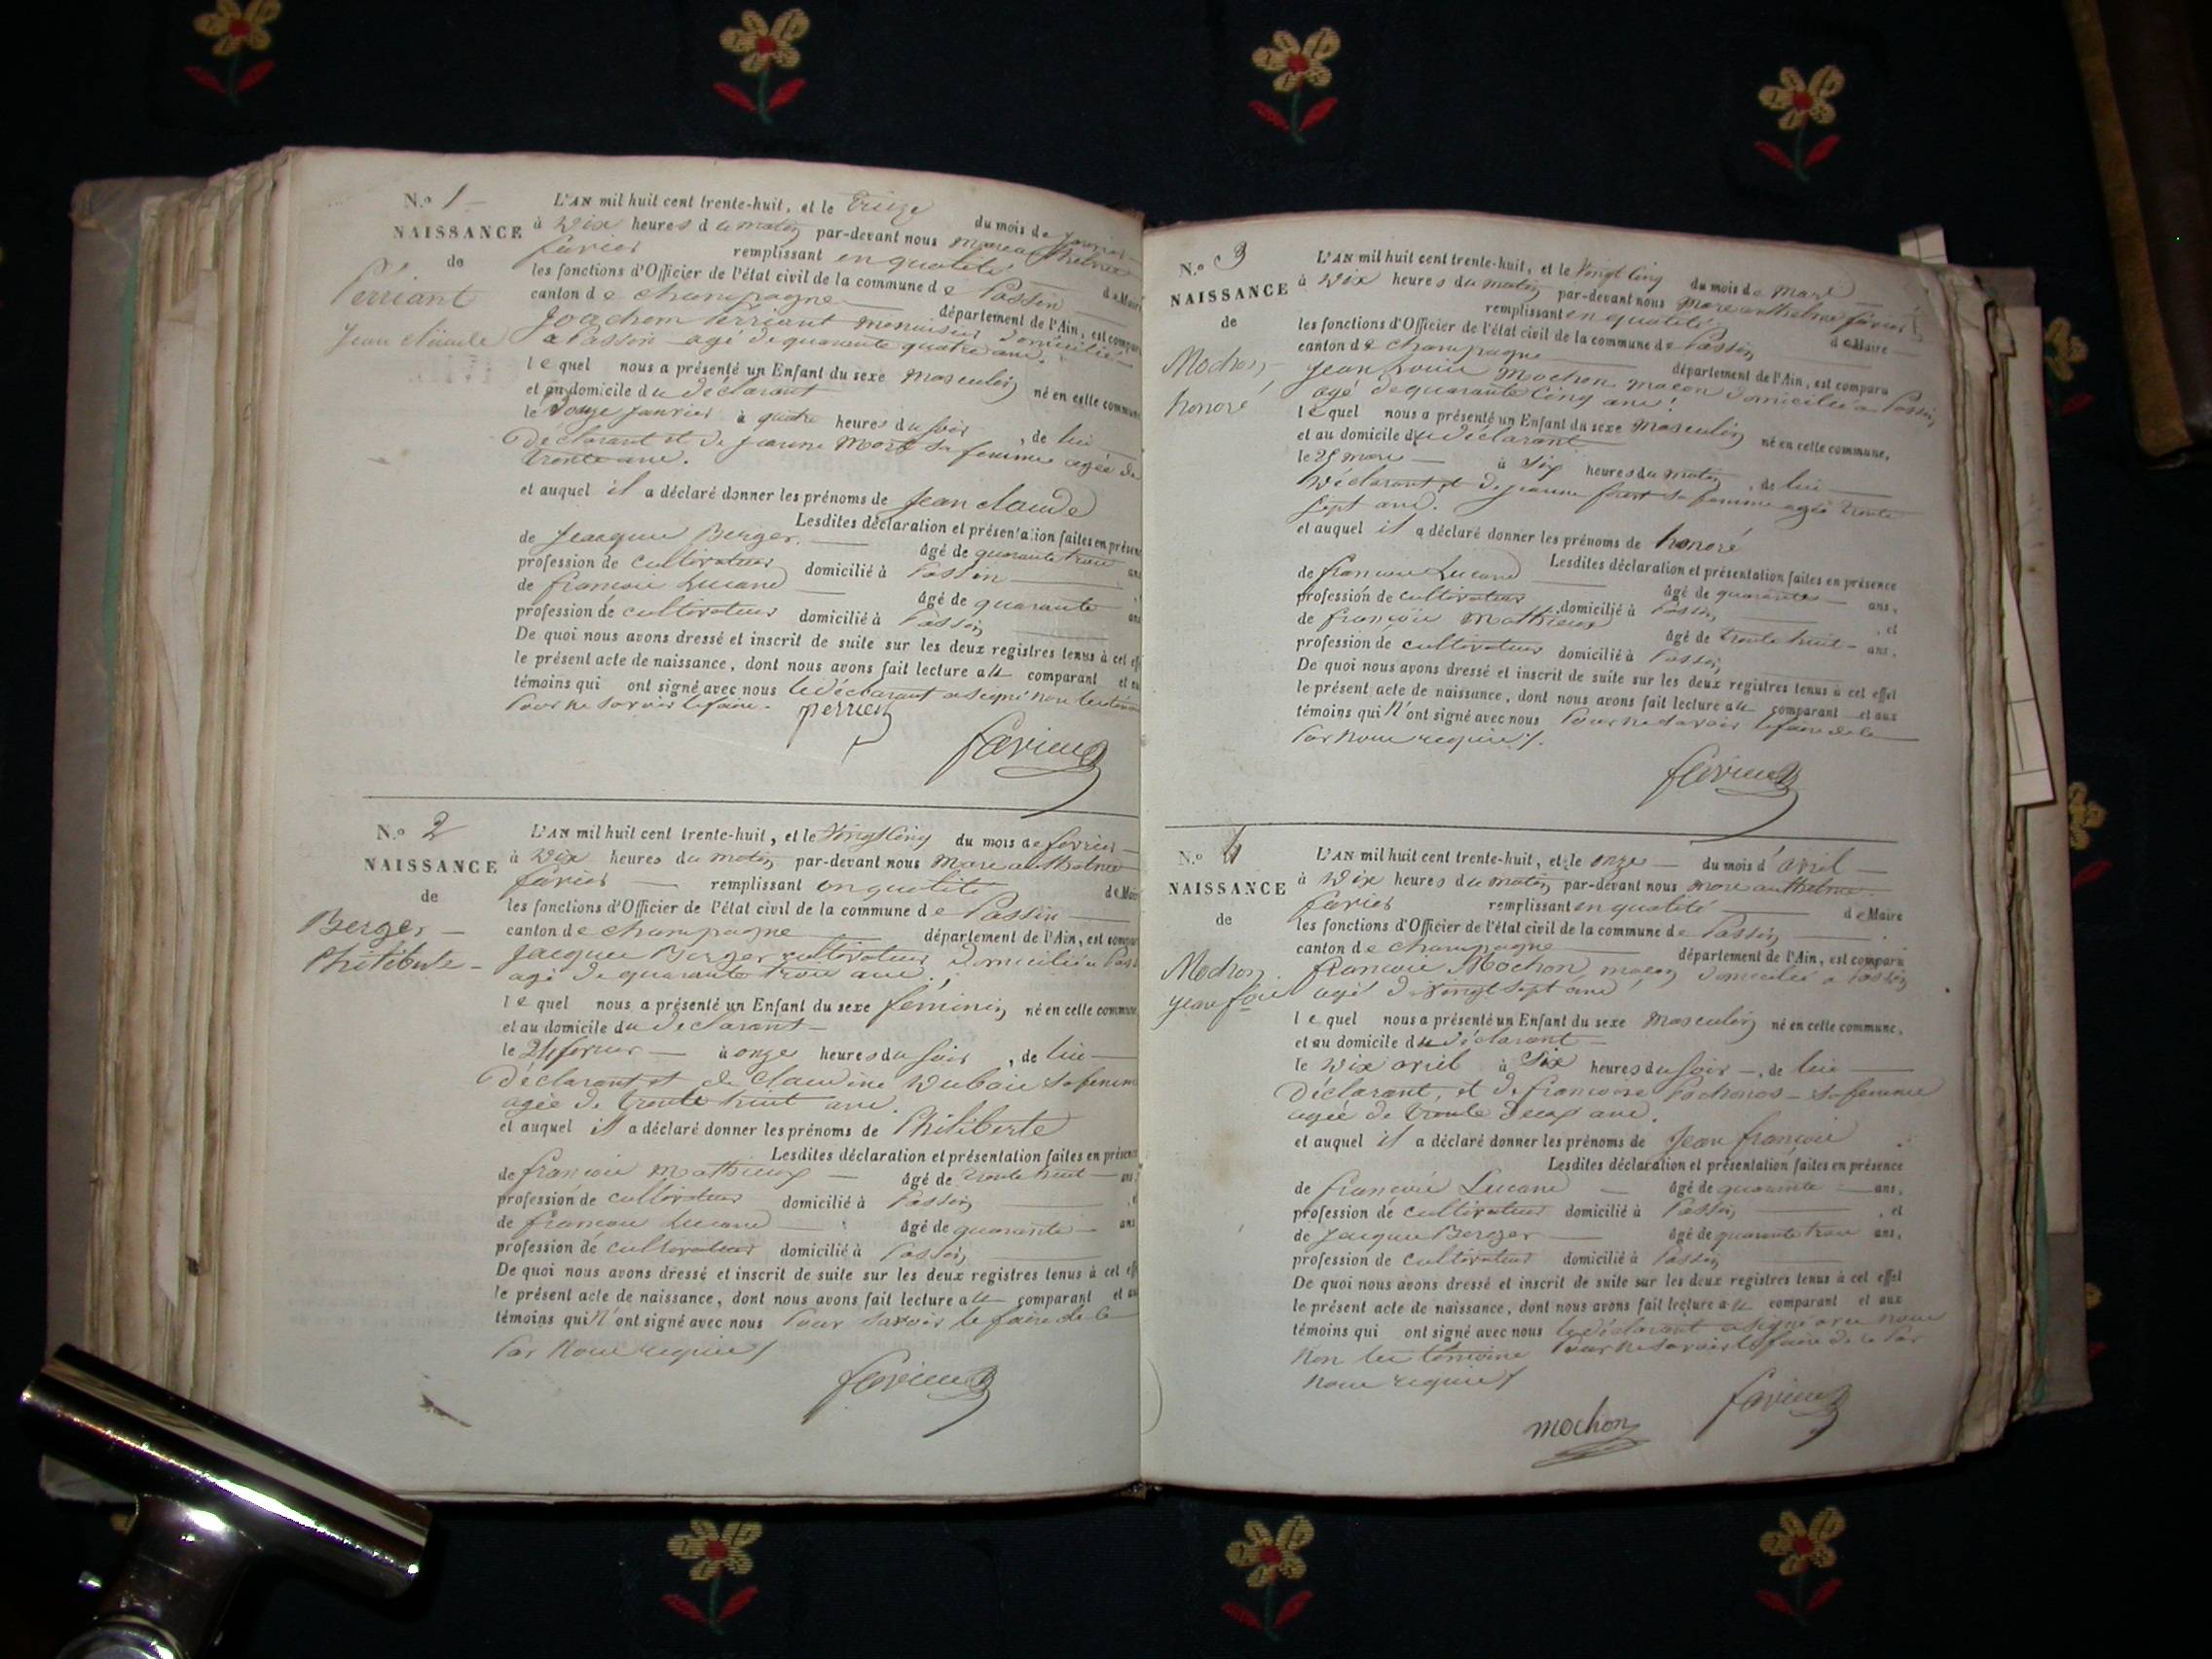 N.o 1
NAISSANCE
de
Perriant
Jean Claude
L'AN mil huit cent trente-huit, et le treize du mois de janvier
à Dix heures du matin par-devant nous Marc anthelme
favier remplissant en qualité de Maire
les fonctions d'Officier de l'état civil de la commune de Passin
canton de champagne département de l'Ain, est compar
Joachim Perriant menuisier domicilié
a Passin agé de quarante quatre ans.
lequel nous a présenté un Enfant du sexe Masculin né en cette commune
et au domicile du déclarant
le Douze janvier à quatre heures du soir, de lui
Déclarant et de jeanne Moret sa femme agée de
trente ans.
et auquel il a déclaré donner les prénoms de Jean claude
Lesdites déclaration et présentation faites en présen
de Jacque Berger âgé de quarante trois ans
profession de cultivateur domicilié à Passin
de francois Lucand âgé de quarante ans
profession de cultivateur domicilié à Passin
De quoi nous avons dressé et inscrit de suite sur les deux registres tenus à cet eff
le présent acte de naissance, dont nous avons fait lecture au comparant et au
témoins qui ont signé avec nous le déclarant a signé non les témoin
Pour ne savoir le faire.
perrien
favier
N.o 2
NAISSANCE
de
Berger
Philiberte
L'AN mil huit cent trente-huit, et le Vingt Cinq du mois de fevrier
à Dix heures du matin par-devant nous Marc anthelme
favier remplissant en qualité de Mair
les fonctions d'Officier de l'état civil de la commune de Passin
canton de champagne département de l'Ain, est compar
Jacque Berger cultivateur Domicilié a Pass
agé de quarante trois ans.
lequel nous a présenté un Enfant du sexe féminin né en cette commune
et au domicile du declarant
le 24 fevrier à onze heures du soir, de lui
Déclarant et de claudine Dubois sa femm
agée de trente huit ans.
et auquel il a déclaré donner les prénoms de Philiberte
Lesdites déclaration et présentation faites en présen
de francois Mathieux âgé de trente huit ans
profession de cultivateur domicilié à Passin
de francois Lucand âgé de quarante ans
profession de cultivateur domicilié à Passin
De quoi nous avons dressé et inscrit de suite sur les deux registres tenus à cet eff
le présent acte de naissance, dont nous avons fait lecture au comparant et au
témoins qui n'ont signé avec nous Pour savoir le faire de ce
Par Nous requis
favier
N.o 3
NAISSANCE
de
Mochon
honoré
L'AN mil huit cent trente-huit, et le Vingt Cinq du mois de Mars
à Dix heures du matin par-devant nous Marc anthelme favier
remplissant en qualité de Maire
les fonctions d'Officier de l'état civil de la commune de Passin
canton de champagne département de l'Ain, est comparu
Jean Louis Mochon maçon domicilié a Passin
agé de quarante Cinq ans.
lequel nous a présenté un Enfant du sexe Masculin né en cette commune,
et au domicile du déclarant
le 25 mars à Six heures du matin, de lui
Déclarant et De jeanne sa femme agée trente
sept ans.
et auquel il a déclaré donner les prénoms de honoré
Lesdites déclaration et présentation faites en présence
de francois Lucand âgé de quarante ans,
profession de cultivateur domicilié à Passin, et
de francois Mathieux âgé de trente huit ans.
profession de cultivateur domicilié à Passin
De quoi nous avons dressé et inscrit de suite sur les deux registres tenus à cet effet
le présent acte de naissance, dont nous avons fait lecture au comparant et aux
témoins qui N'ont signé avec nous Pour ne savoir le faire de ce
Par Nous requis.
favier
N.o 4
NAISSANCE
de
Mochon
Jean f.ois
L'AN mil huit cent trente-huit, et le onze du mois d'avril
à Dix heures du matin par-devant nous Marc anthelme
favier remplissant en qualité de Maire
les fonctions d'Officier de l'état civil de la commune de Passin
canton de champagne département de l'Ain, est comparu
francois Mochon maçon domicilié a Passin
agé de Vingt sept ans
lequel nous a présenté un Enfant du sexe Masculin né en cette commune,
et au domicile du déclarant
le Dix avril à Six heures du soir, de lui
Déclarant, et de francoise sa femme
agée de trente deux ans.
et auquel il a déclaré donner les prénoms de Jean francois
Lesdites déclaration et présentation faites en présence
de francois Lucand âgé de quarante ans,
profession de cultivateur domicilié à Passin, et
de Jacque Berger âgé de quarante trois ans,
profession de cultivateur domicilié à Passin
De quoi nous avons dressé et inscrit de suite sur les deux registres tenus à cet effet
le présent acte de naissance, dont nous avons fait lecture au comparant et aux
témoins qui ont signé avec nous le déclarant a signé avec nous
Non les témoins Pour ne savoir le faire de ce Par
Nous requis
mochon
favier